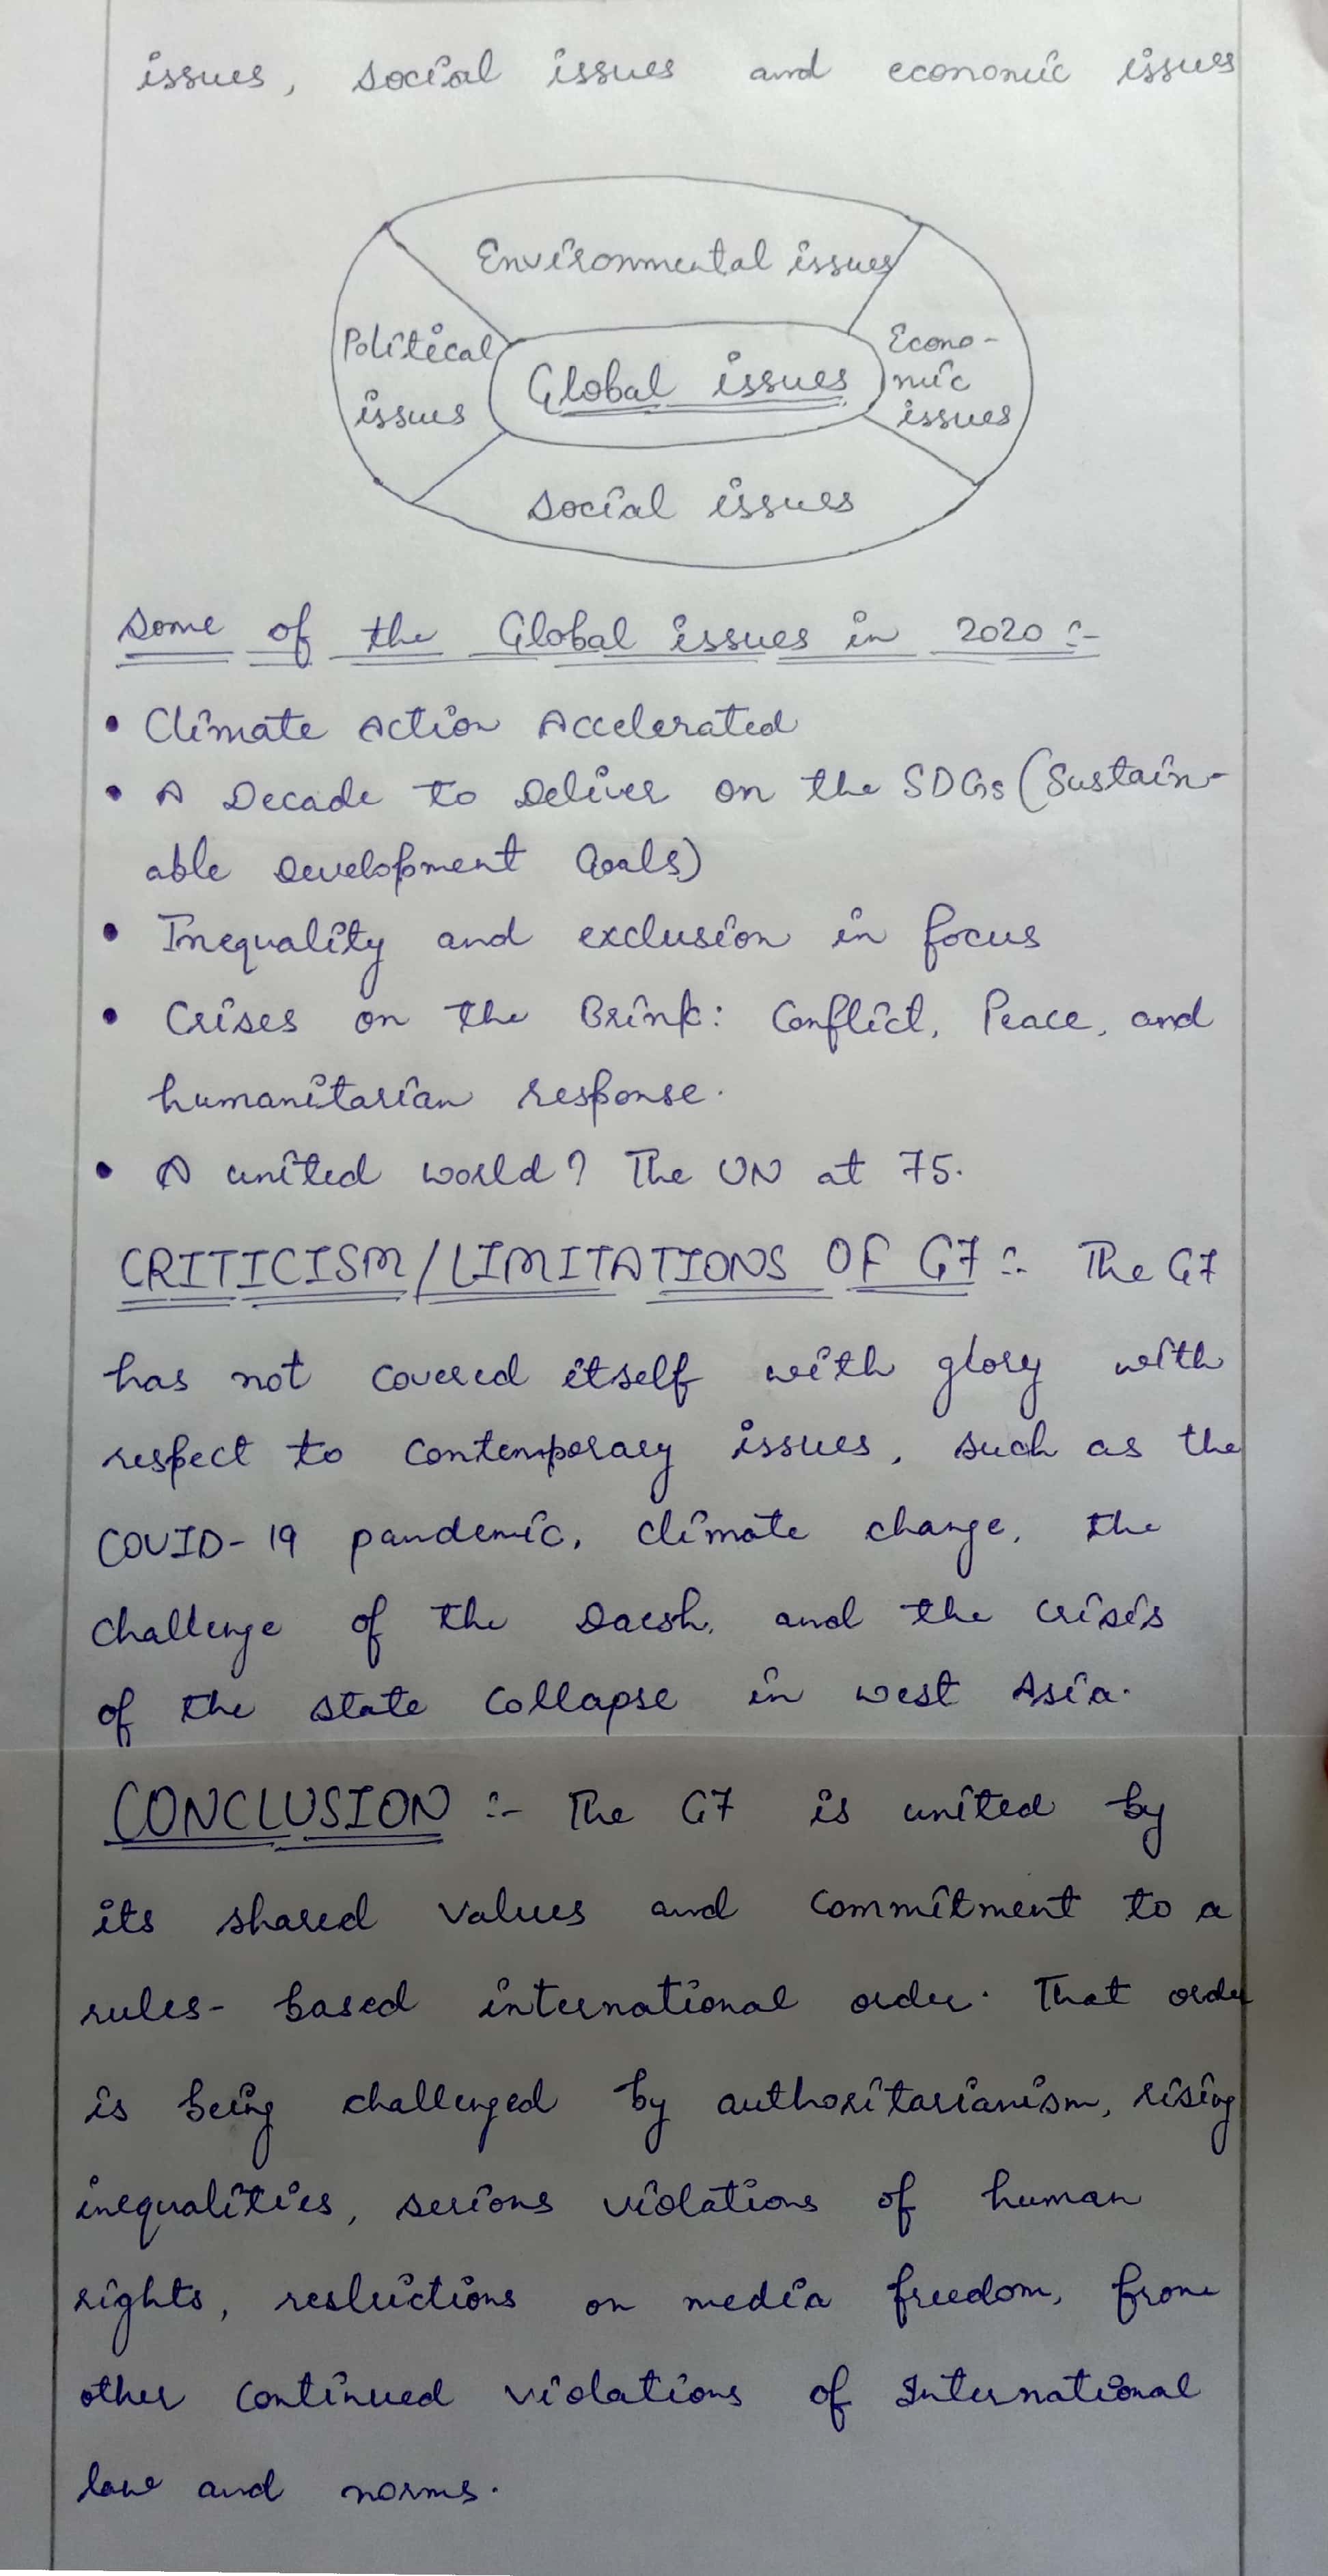 issues, social issues and economic issues
Environmental issues
Political
issues
Global issues
Econo-
mic
issues
Social issues
Some of the Global issues in 2020 :-
• Climate Action Accelerated
• A Decade to Deliver on the SDGs (Sustain-
able Development Goals)
• Inequality and exclusion in focus
• Crises on the Brink: Conflict, Peace, and
humanitarian response.
• A united world? The UN at 75.
CRITICISM/LIMITATIONS OF G7 :- The G7
has not covered itself with glory with
respect to contemporary issues, such as the
COVID-19 pandemic, climate change, the
challenge of the Daesh, and the crisis
of the state collapse in west Asia.
CONCLUSION :- The G7 is united by
its shared values and commitment to a
rules- based international order. That order
is being challenged by authoritarianism, rising
inequalities, serious violations of human
rights, restrictions on media freedom, from
other continued violations of International
law and norms.